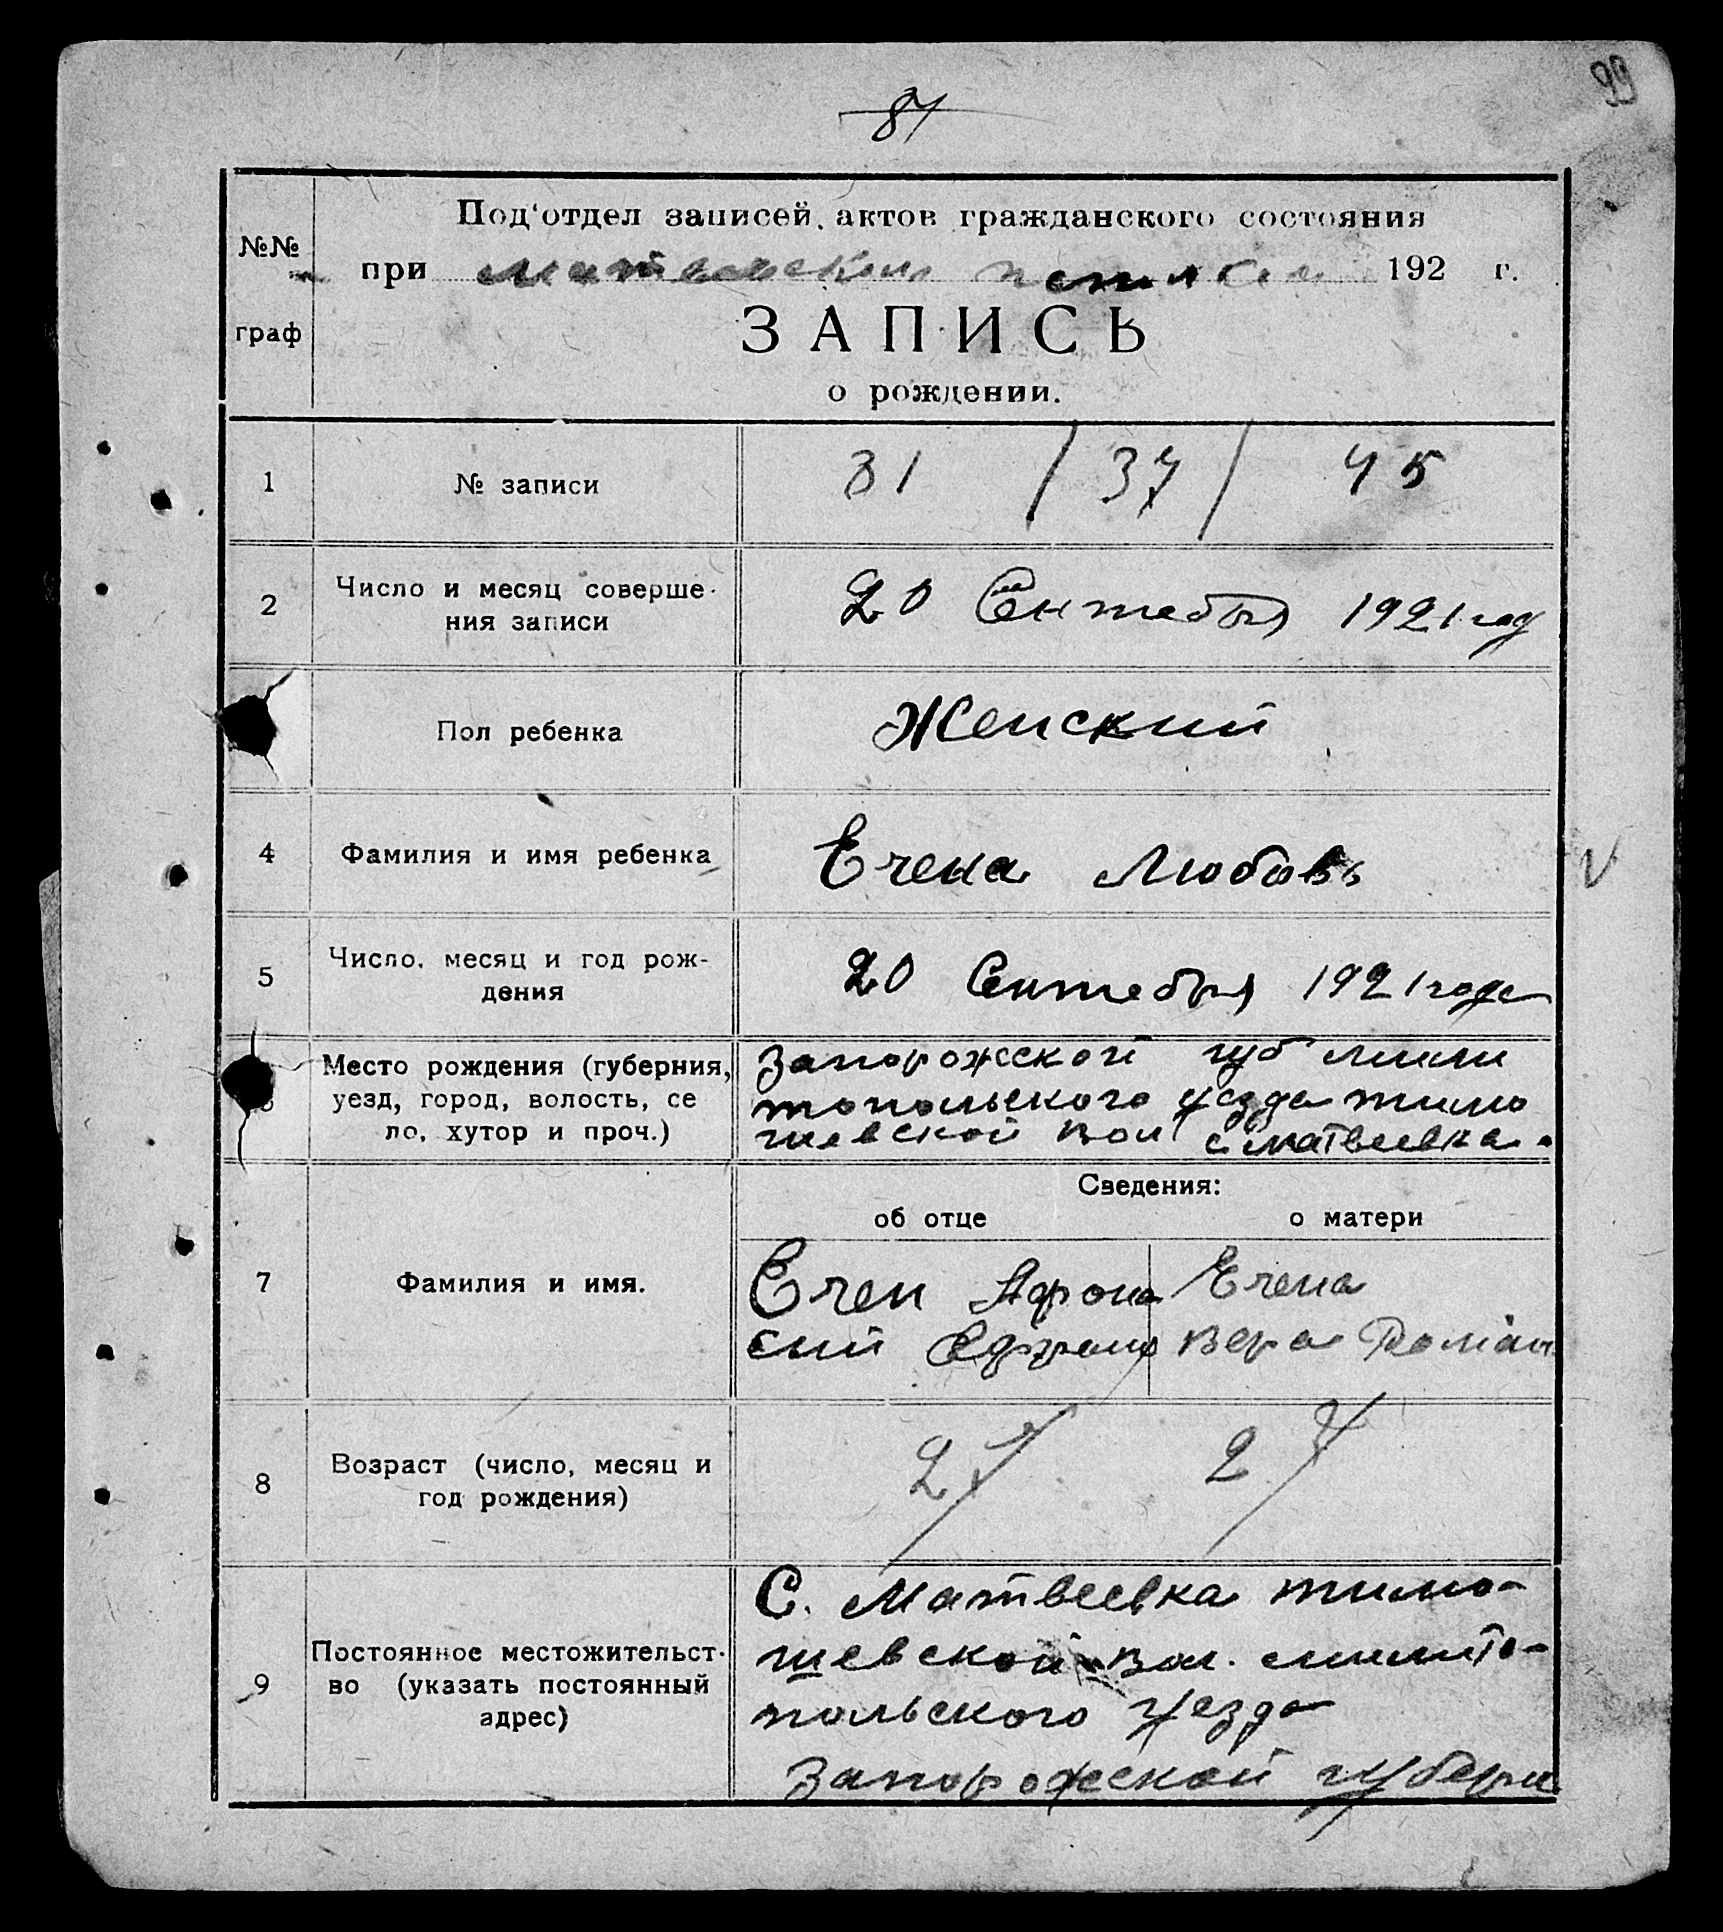 99
81
Под'отдел записей актов гражданского состояния
№№
при 192 г.
граф
ЗАПИСЬ
о рождении.
1 № записи 31 / 37 / 45
2 Число и месяц соверше-
ния записи
20 Сентебря 1921 год
Пол ребенка Женский
4 Фамилия и имя ребенка Ечена Любовь
5 Число, месяц и год рож-
дения
20 Сентебря 1921 года
Место рождения (губерния,
уезд, город, волость, се
ло, хутор и проч.)
Запорожской губ мили
топольского уезда тимо
шевской вол с. матвеевка.
Сведения:
об отце о матери
7 Фамилия и имя.
Ечен Афона
сий
Ечена
вера Роман
8 Возраст (число, месяц и
год рождения)
27 27
9 Постоянное местожительст-
во (указать постоянный
адрес)
С. Матвеевка тимо-
шевской вол. мелито-
польского уезда
Запорожской губерн